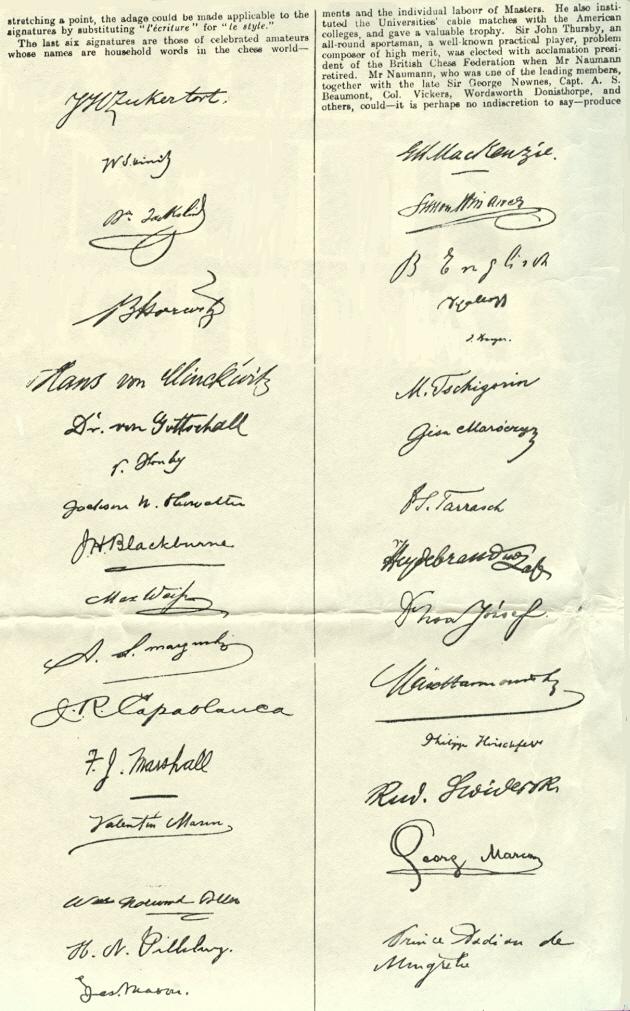 stretching a point, the adage could be made applicable to the
signatures by substituting "l'écriture" for "le style."
The last six signatures are those of celebrated amateurs
whose names are household words in the chess world—
JHZukertort.
B Horwitz
Hans von Minckwitz
Dr. von Gottschall
Jackson W. Showalter
J.H. Blackburne
Max Weiss
J. R. Capablanca
F. J. Marshall
Valentin Marin
H. N. Pillsbury.
Jas. Mason.
ments and the individual labour of Masters. He also insti-
tuted the Universities' cable matches with the American
colleges, and gave a valuable trophy. Sir John Thursby, an
all-round sportsman, a well-known practical player, problem
composer of high merit, was elected with acclamation presi-
dent of the British Chess Federation when Mr Naumann
retired. Mr Naumann, who was one of the leading members,
together with the late Sir George Nownes, Capt. A. S.
Beaumont, Col. Vickers, Wordsworth Donisthorpe, and
others, could—it is perhaps no indiscretion to say—produce
GH MacKenzie.
Simon Winawer
B Englisch
M. Tschigorin
Géza Maróczy
S. Tarrasch
Heydebrand
József
Philipp Hirschfeld
Rud. Swiderski
Georg Marco
Prince Dadian de
Mingrelie